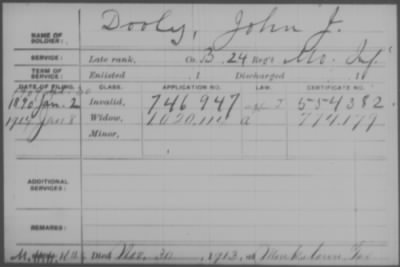 NAME OF SOLDIER: Dooly, John J.
SERVICE: Late rank, Co. B, 24 Reg't Mo. Inf
TERM OF SERVICE: Enlisted , 1 Discharged , 1
DATE OF FILING. CLASS. APPLICATION NO. LAW. CERTIFICATE NO.
1890 Jan. 2 Invalid, 746947 554382
Jan 8 Widow, 774179
Minor,
ADDITIONAL SERVICES:
REMARKS:
Died Nov. 30, 1913, at Monkstown Tex